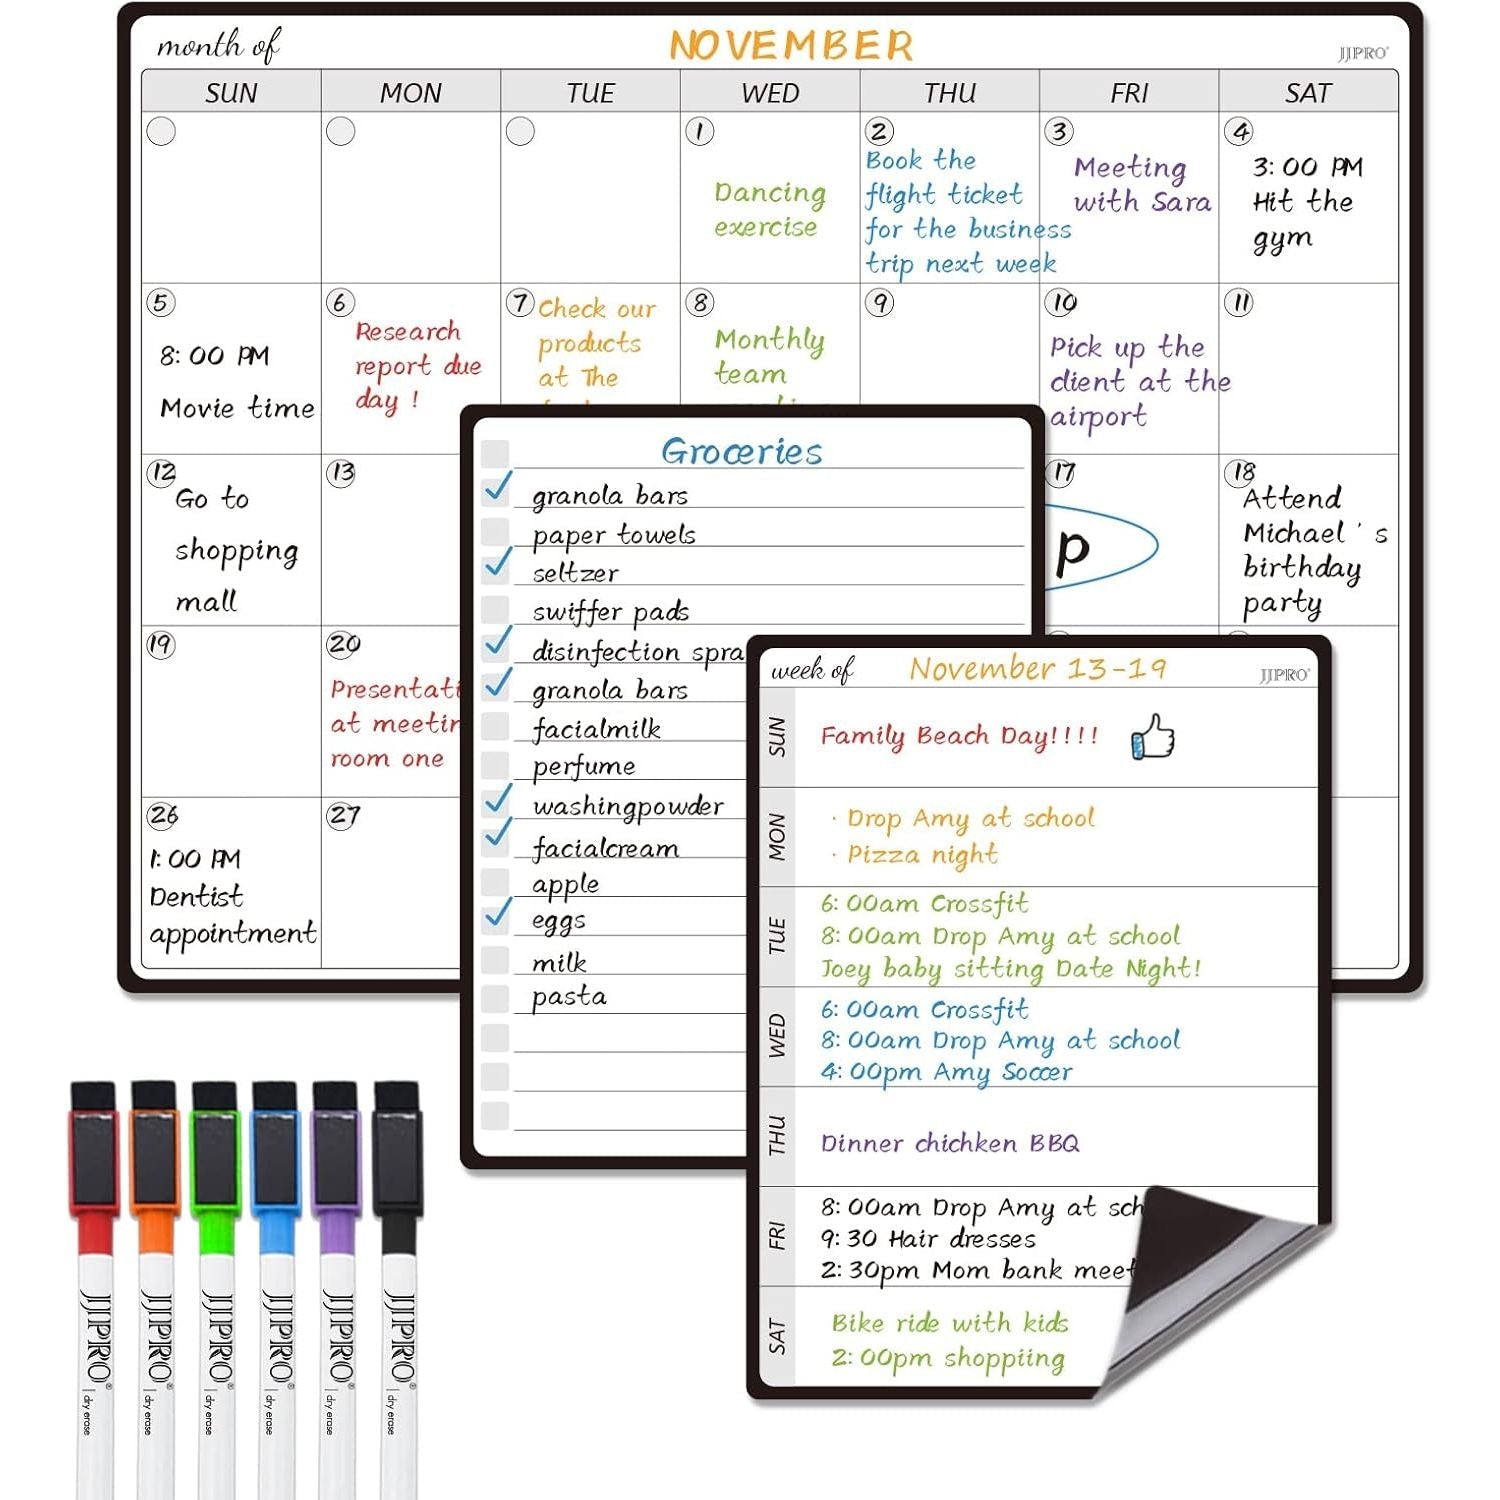 month of
NOVEMBER
JJPRO®
SUN MON TUE WED THU FRI SAT
1 2 3 4
Dancing
exercise
Book the
flight ticket
for the business
trip next week
Meeting
with Sara
3: 00 PM
Hit the
gym
5 6 7 8 9 10 11
8: 00 PM
Movie time
Research
report due
day !
Check our
products
at The
Monthly
team
Pick up the
client at the
airport
12 13 17 18
Go to
shopping
mall
p
Attend
Michael ' s
birthday
party
19 20
Presentati
at meetin
room one
26 27
1: 00 PM
Dentist
appointment
Groceries
granola bars
paper towels
seltzer
swiffer pads
disinfection spra
granola bars
facialmilk
perfume
washingpowder
facialcream
apple
eggs
milk
pasta
week of
November 13-19
JJPRO®
SUN
Family Beach Day!!!!
MON
· Drop Amy at school
· Pizza night
TUE
6: 00am Crossfit
8: 00am Drop Amy at school
Joey baby sitting Date Night!
WED
6: 00am Crossfit
8: 00am Drop Amy at school
4: 00pm Amy Soccer
THU
Dinner chichken BBQ
FRI
8: 00am Drop Amy at sch
9: 30 Hair dresses
2: 30pm Mom bank meet
SAT
Bike ride with kids
2: 00pm shoppiing
JJPRO® | dry erase
JJPRO® | dry erase
JJPRO® | dry erase
JJPRO® | dry erase
JJPRO® | dry erase
JJPRO® | dry erase